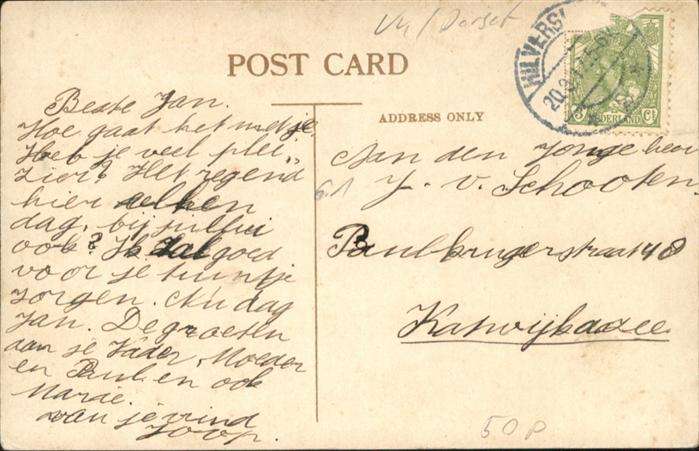 Vk / Dorset
POST CARD
ADDRESS ONLY
HILVERSU
20.8.1 7.5-6N
3 Ct
NEDERLAND
Beste Jan.
Hoe gaat het met je
Heb je veel plei„
zier? Het regend
hier elken
dag, bij jullie
ook? Ik zal goed
voor je tuintje
zorgen. Nu dag
Jan. De groeten
aan je Vader, Moeder
en Paul en ook
Marie.
van je vrind
Joop.
Aan den Jonge heer
J. v. Schooten.
6.1
Paulbrugerstraat 48
Katwijk a zee
50p